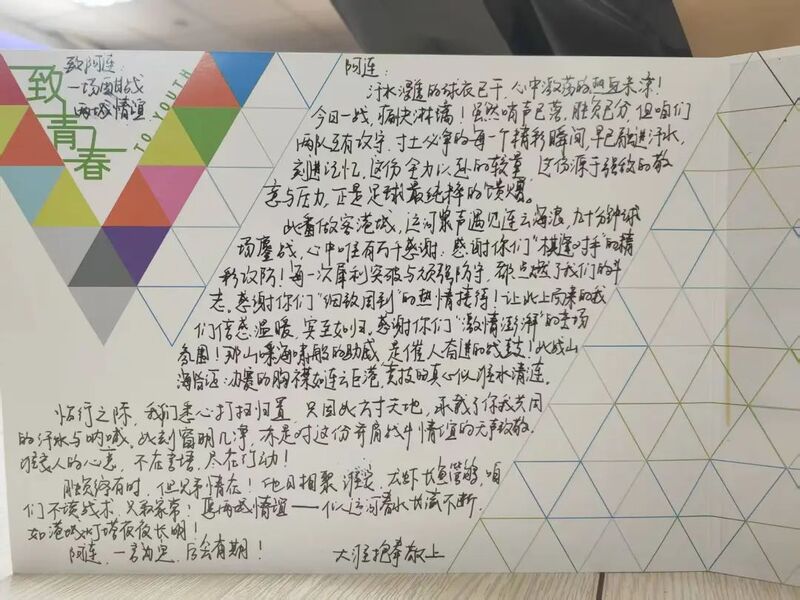 致青春
TO YOUTH
致阿连:
一场酣战
两城情谊
阿连:
汗水濯的球衣已干,心中激荡的热血未凉!
今日一战,痛快淋漓!虽然哨声已落,胜负已分,但咱们
两队互有攻守,寸土必争的每一个精彩瞬间,早已融进汗水,
刻进记忆。这份全力以赴的较量,这份源于强敌的敬
意与压力,正是足球最纯粹的馈赠。
此番做客港城,运河泉声遇见连云海浪,九十分钟球
场鏖战,心中唯有万千感谢:感谢你们"棋逢对手"的精
彩攻防!每一次犀利突破与顽强防守,都点燃了我们的斗
志。感谢你们"细致周到"的热情接待!让北上而来的我
们倍感温暖,宾至如归。感谢你们"激情澎湃"的主场
氛围!那山呼海啸般的助威,是催人奋进的战鼓!此战山
海皆证:办赛的胸襟如连云巨港,竞技的真心似淮水清涟。
临行之际,我们悉心打扫归置,只因此方寸天地,承载了你我共同
的汗水与呐喊,此刻窗明几净,亦是对这份并肩战斗情谊的无声致敬。
淮安人的心意,不在言语,尽在行动!
胜负终有时,但兄弟情在!他日相聚淮安,龙虾长鱼管够,咱
们不谈战术,只叙家常!愿两城情谊——似运河春水长流不断,
如港城灯塔夜夜长明!
阿连,一言为定,后会有期!
大淮抱拳敬上